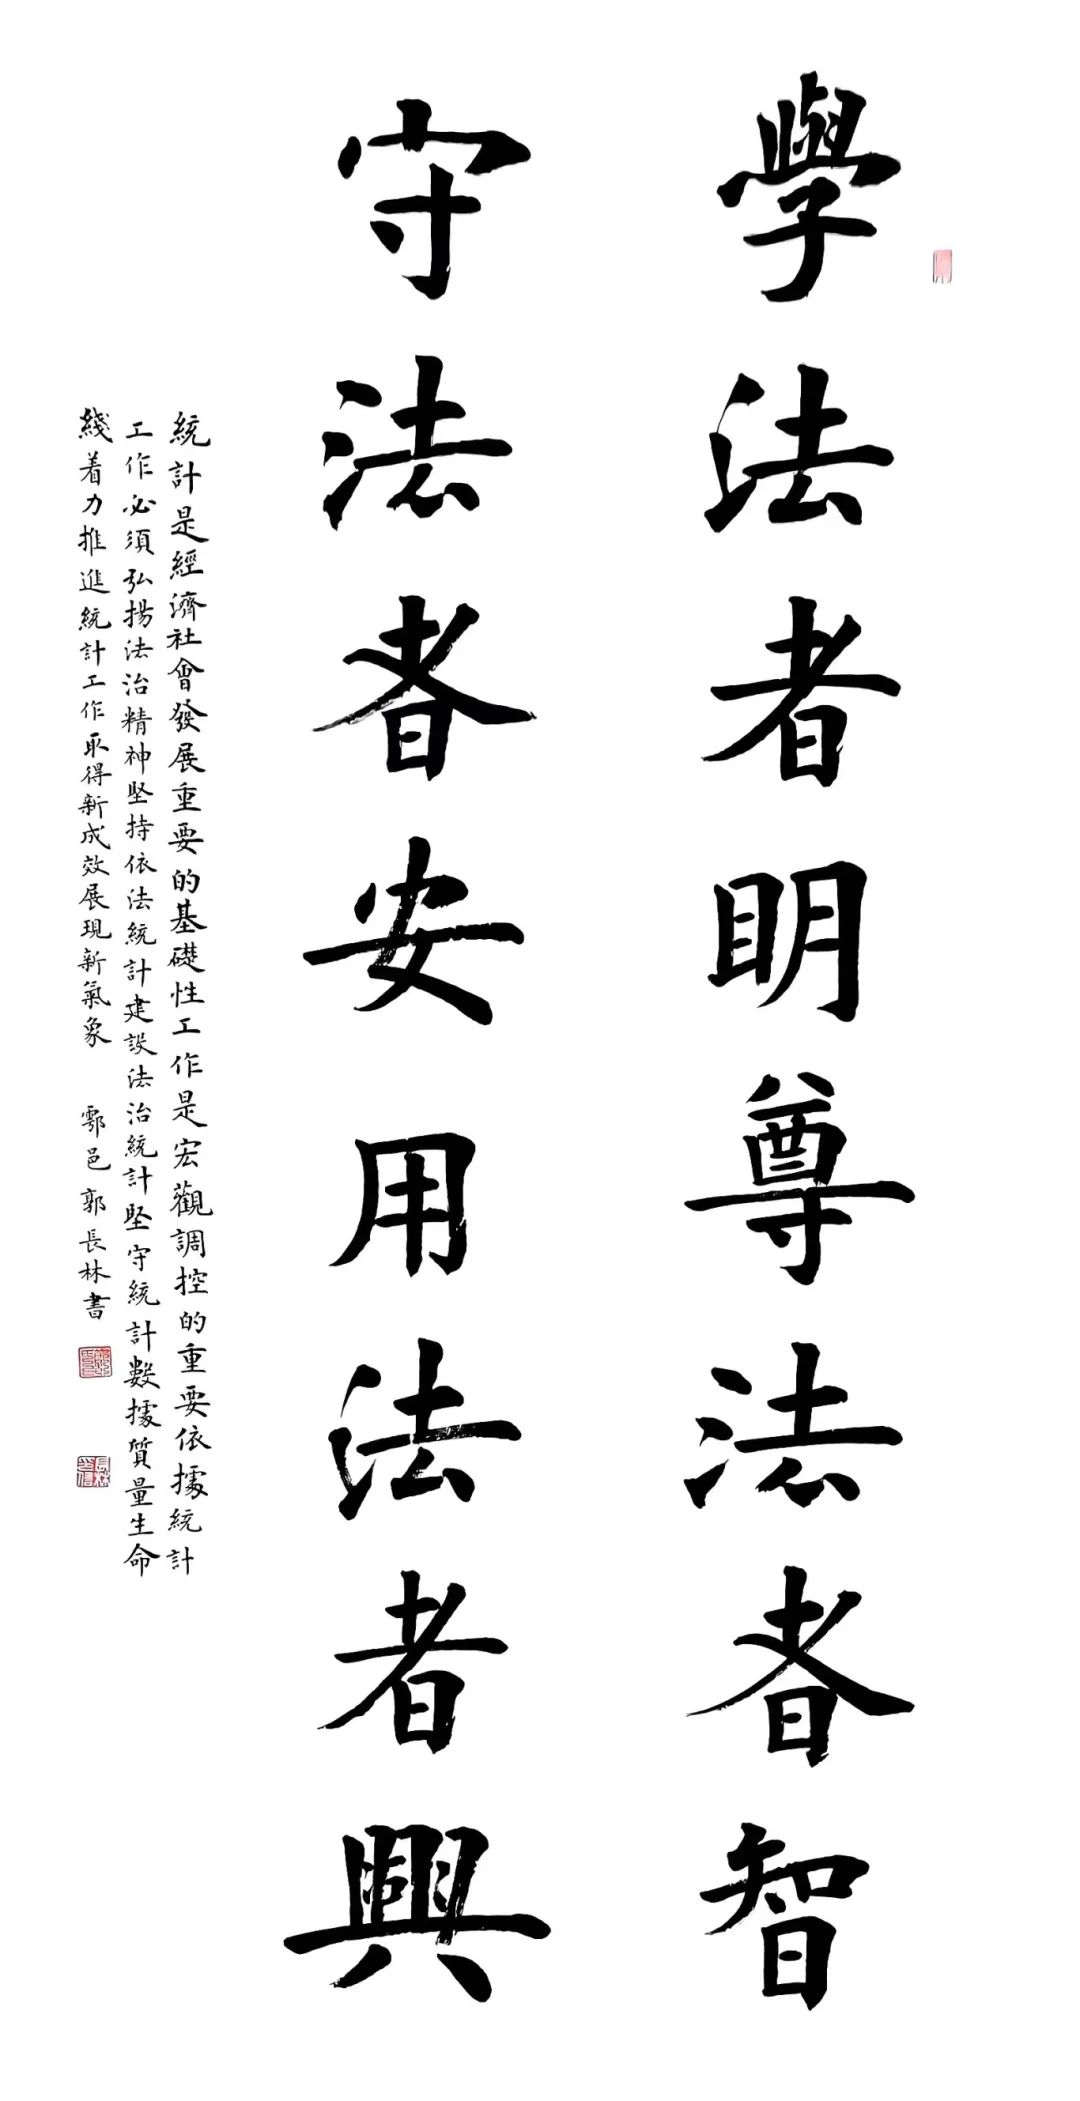 學法者明尊法者智
守法者安用法者興
統計是經濟社會發展重要的基礎性工作是宏觀調控的重要依據統計
工作必須弘揚法治精神堅持依法統計建設法治統計堅守統計數據質量生命
綫着力推進統計工作取得新成效展現新氣象 鄠邑郭長林書